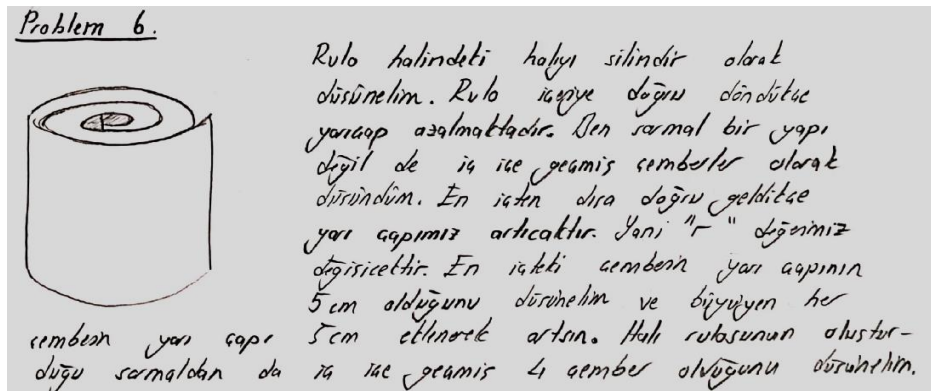 Problem 6.
Rulo halindeki halıyı silindir olarak
düşünelim. Rulo içeriye doğru döndükçe
yarıçap azalmaktadır. Ben sarmal bir yapı
değil de iç içe geçmiş çemberler olarak
düşündüm. En içten dışa doğru geldikçe
yarı çapımız artıcaktır. Yani "r" değerimiz
değişicektir. En içteki çemberin yarı çapının
5 cm olduğunu düşünelim ve büyüyen her
çemberin yarı çapı 5 cm eklenerek artsın. Halı rulosunun oluştur-
duğu sarmaldan da iç içe geçmiş 4 çember olduğunu düşünelim.